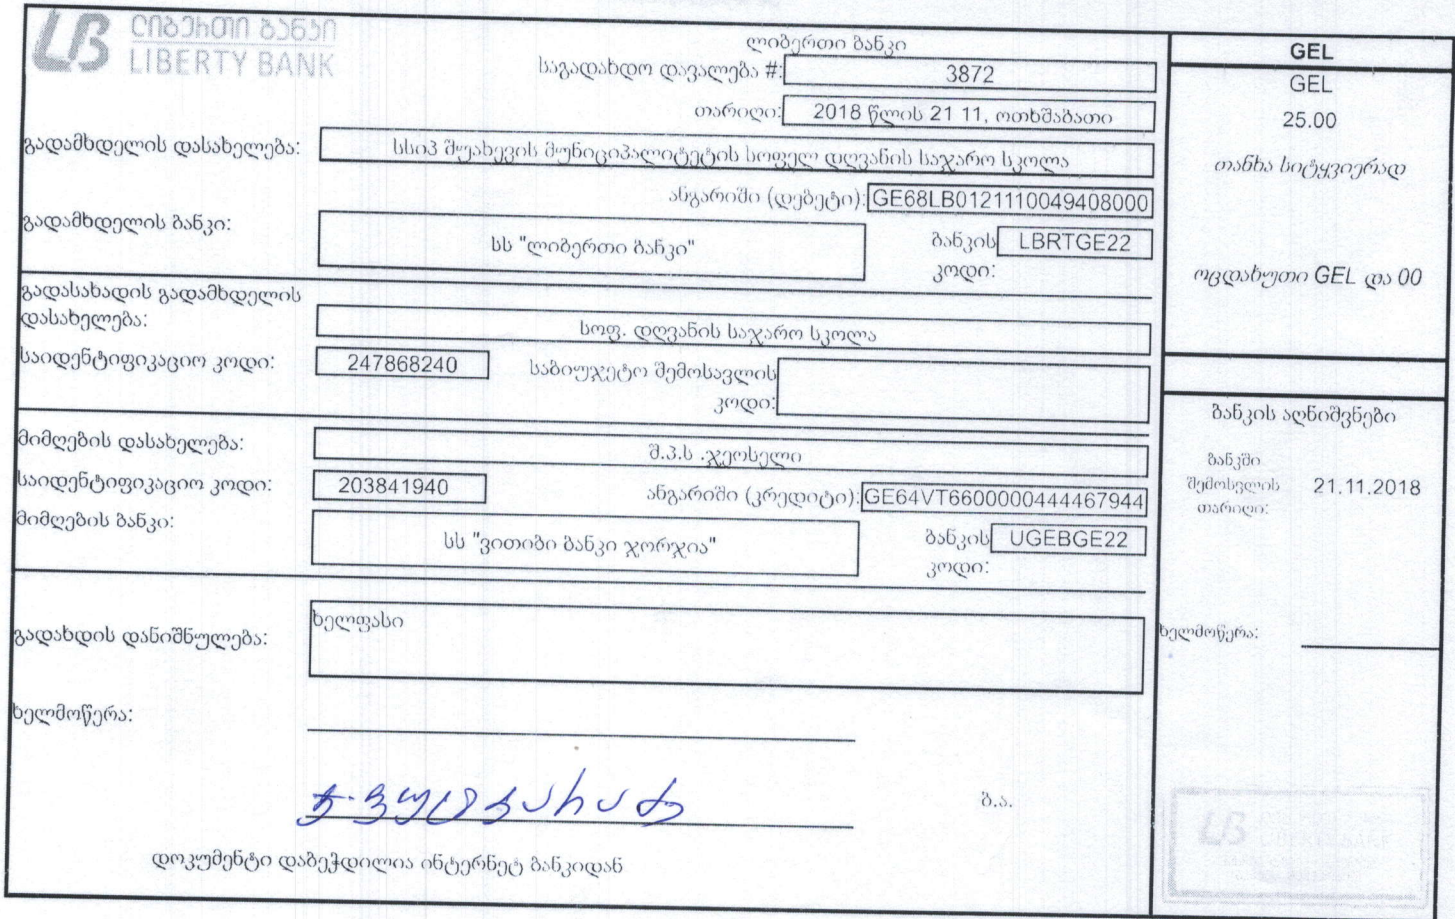 ლიბერთი ბანკი
LIBERTY BANK
ლიბერთი ბანკი
საგადახდო დავალება #: 3872
თარიღი: 2018 წლის 21 11, ოთხშაბათი
გადამხდელის დასახელება: სსიპ შუახევის მუნიციპალიტეტის სოფელ დღვანის საჯარო სკოლა
ანგარიში (დებეტი): GE68LB0121110049408000
გადამხდელის ბანკი: სს "ლიბერთი ბანკი" ბანკის კოდი: LBRTGE22
გადასახადის გადამხდელის
დასახელება: სოფ. დღვანის საჯარო სკოლა
საიდენტიფიკაციო კოდი: 247868240 საბიუჯეტო შემოსავლის
კოდი:
მიმღების დასახელება: შ.პ.ს .ჯეოსელი
საიდენტიფიკაციო კოდი: 203841940 ანგარიში (კრედიტი): GE64VT6600000444467944
მიმღების ბანკი: სს "ვითიბი ბანკი ჯორჯია" ბანკის კოდი: UGEBGE22
გადახდის დანიშნულება: ხელფასი
ხელმოწერა:
ბ.ა.
დოკუმენტი დაბეჭდილია ინტერნეტ ბანკიდან
GEL
GEL
25.00
თანხა სიტყვიერად
ოცდახუთი GEL და 00
ბანკის აღნიშვნები
ბანკში
შემოსვლის 21.11.2018
თარიღი:
ხელმოწერა:
LB
LIBERTY BANK